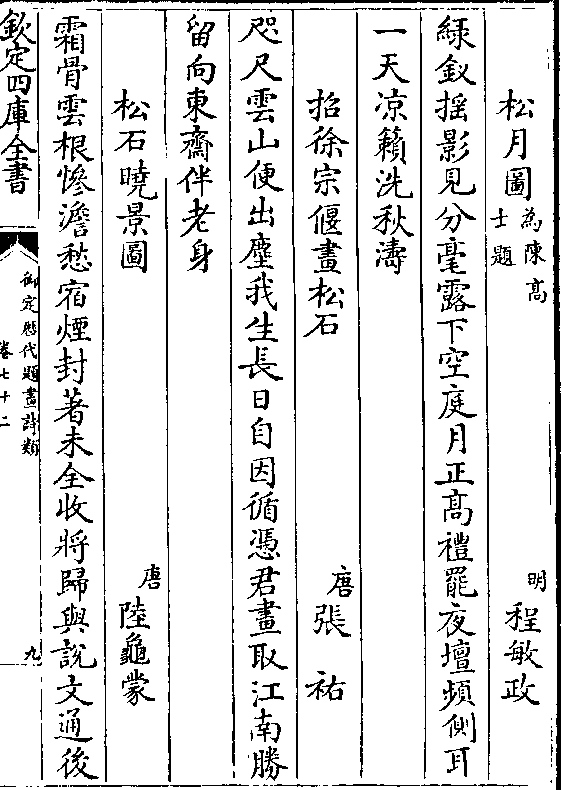 松月圖 為陳髙士題 明 程敏政
緑釵揺影見分毫露下空庭月正髙禮罷夜壇頻側耳
一天凉籟洗秋濤
招徐宗偃畫松石 唐 張祐
咫尺雲山便出塵我生長日自因循憑君畫取江南勝
留向東齋伴老身
松石曉景圖 唐 陸龜蒙
霜骨雲根慘澹愁宿煙封著未全收將歸與説文通後
欽定四庫全書
御定歴代題畫詩類
卷七十二
九